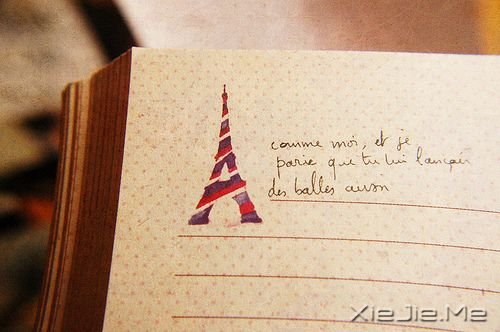 comme moi, et je
parie que tu lui lançais
des balles aussi
XieJie.Me